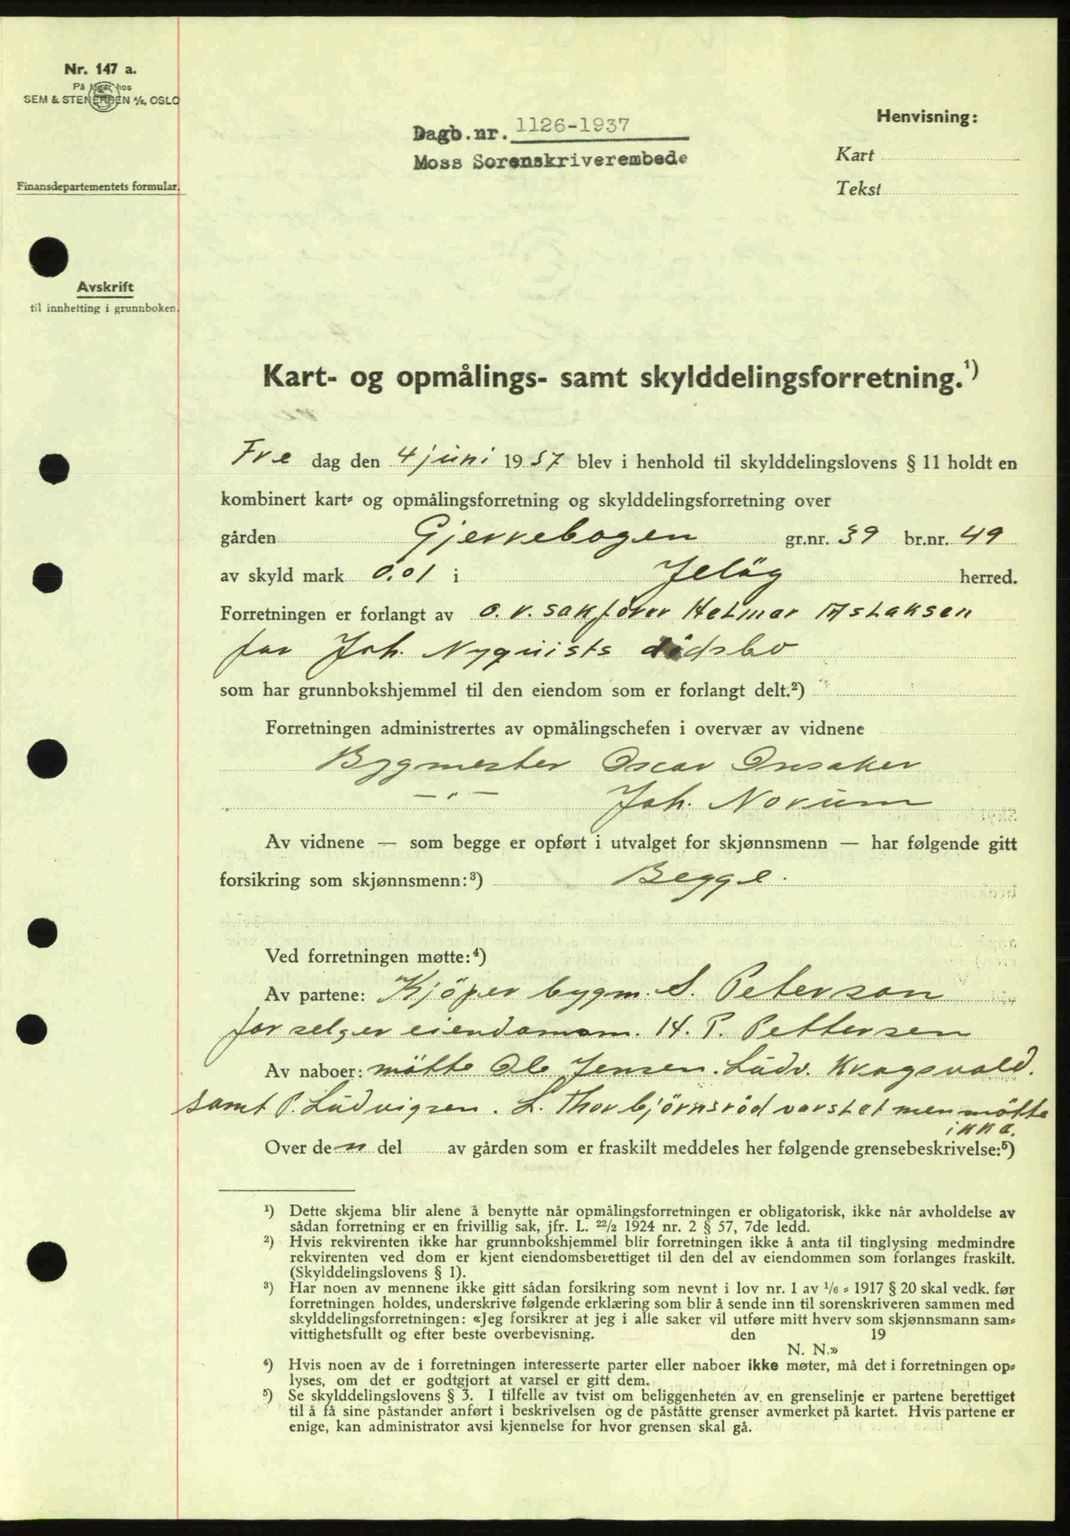 Nr. 147 a.
På lager hos
SEM & STENERSEN A/S, OSLO
Finansdepartementets formular.
Avskrift
til innhefting i grunnboken.
Dagb.nr. 1126-1937
Moss Sorenskriverembede
Henvisning:
Kart
Tekst
Kart- og opmålings- samt skylddelingsforretning.¹)
Fre dag den 4 juni 1937 blev i henhold til skylddelingslovens § 11 holdt en
kombinert kart- og opmålingsforretning og skylddelingsforretning over
gården Gjerrebogen gr.nr. 39 br.nr. 49
av skyld mark 0.01 i Jelöy herred.
Forretningen er forlangt av o.r. sakförer Helmar Aslaksen
for Joh. Nyquists dödsbo
som har grunnbokshjemmel til den eiendom som er forlangt delt.²)
Forretningen administrertes av opmålingschefen i overvær av vidnene
Bygmester Oscar Onsaker
—"— Joh. Norum
Av vidnene — som begge er opført i utvalget for skjønnsmenn — har følgende gitt
forsikring som skjønnsmenn:³) Begge.
Ved forretningen møtte:⁴)
Av partene: Kjöper bygm. S. Peterson
for selger eiendomsm. H. P. Pettersen
Av naboer: mötte Ole Jensen. Ludv. Kragsvold.
samt P. Ludvigsen. L. Thorbjörnsröd varslet men mötte
ikke.
Over de n del av gården som er fraskilt meddeles her følgende grensebeskrivelse:⁵)
¹) Dette skjema blir alene å benytte når opmålingsforretningen er obligatorisk, ikke når avholdelse av
sådan forretning er en frivillig sak, jfr. L. 22/2 1924 nr. 2 § 57, 7de ledd.
²) Hvis rekvirenten ikke har grunnbokshjemmel blir forretningen ikke å anta til tinglysing medmindre
rekvirenten ved dom er kjent eiendomsberettiget til den del av eiendommen som forlanges fraskilt.
(Skylddelingslovens § 1).
³) Har noen av mennene ikke gitt sådan forsikring som nevnt i lov nr. 1 av 1/6 - 1917 § 20 skal vedk. før
forretningen holdes, underskrive følgende erklæring som blir å sende inn til sorenskriveren sammen med
skylddelingsforretningen: «Jeg forsikrer at jeg i alle saker vil utføre mitt hverv som skjønnsmann sam-
vittighetsfullt og efter beste overbevisning. den 19
N. N.»
⁴) Hvis noen av de i forretningen interesserte parter eller naboer ikke møter, må det i forretningen op-
lyses, om det er godtgjort at varsel er gitt dem.
⁵) Se skylddelingslovens § 3. I tilfelle av tvist om beliggenheten av en grenselinje er partene berettiget
til å få sine påstander anført i beskrivelsen og de påståtte grenser avmerket på kartet. Hvis partene er
enige, kan administrator avsi kjennelse for hvor grensen skal gå.